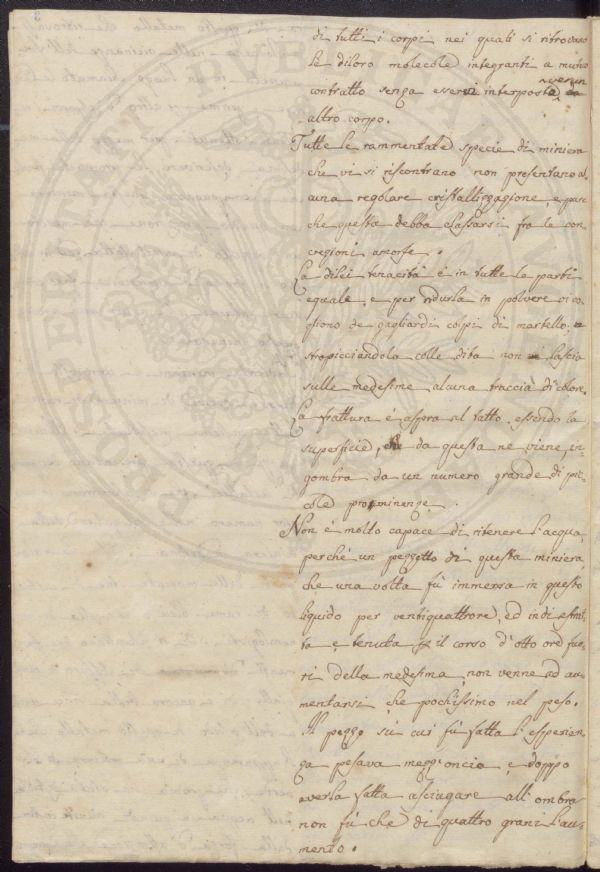 di tutti i corpi nei quali si ritrovano
le diloro molecole integranti a mutuo
contratto senza esservi interposta verun
altro corpo.
Tutte le rammentate specie di miniera
che vi si riscontrano non presentano al-
cuna regolare cristallizzazione, e pare
che questa debba classarsi fra le con
crezioni amorfe.
La dilei tenacità è in tutte le parti
eguale, e per ridurla in polvere vi vo
gliono de gagliardi colpi di martello, e
stropicciandola colle dita non lascia
sulle medesime alcuna traccia di colore.
La frattura è aspra al tatto, essendo la
superficie, che da questa ne viene, in-
gombra da un numero grande di pic
cole prominenze.
Non è molto capace di ritenere l'acqua,
perché un pezzetto di questa miniera,
che una volta fù immersa in questo
liquido per ventiquattrore, ed indi estrat
ta e tenuta per il corso d'otto ore fuo
ri della medesima, non venne ad au-
mentarsi che pochissimo nel peso.
Il pezzo sù cui fù fatta l'esperien-
za pesava mezz'oncia e doppo
averla fatta asciugare all'ombra
non fù che di quattro grani l'au-
mento.